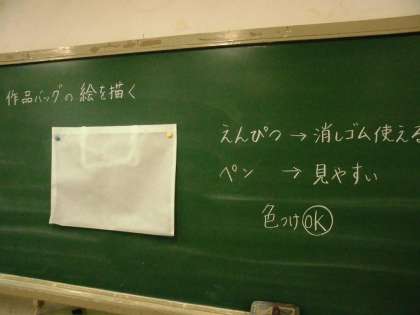 作品バッグの絵を描く
えんぴつ→消しゴム使える
ペン→見やすい
色つけOK